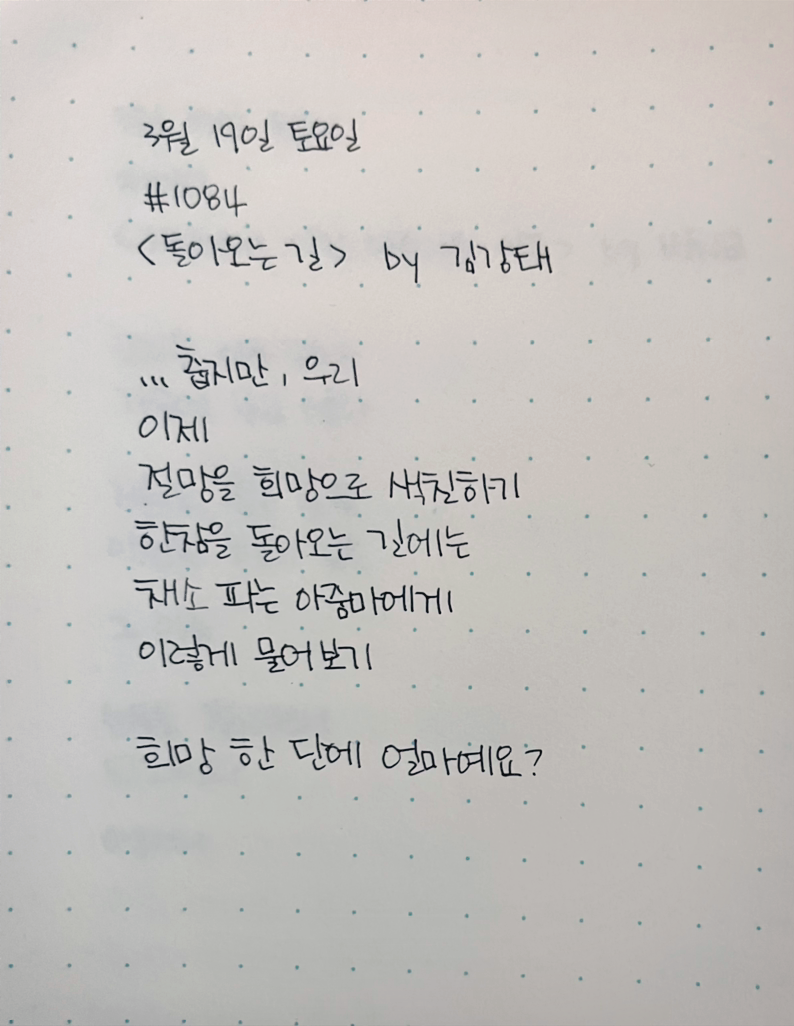 3월 19일 토요일
#1084
<돌아오는 길> by 김강태
... 춥지만, 우리
이제
절망을 희망으로 색칠하기
한참을 돌아오는 길에는
채소 파는 아줌마에게
이렇게 물어보기
희망 한 단에 얼마예요?